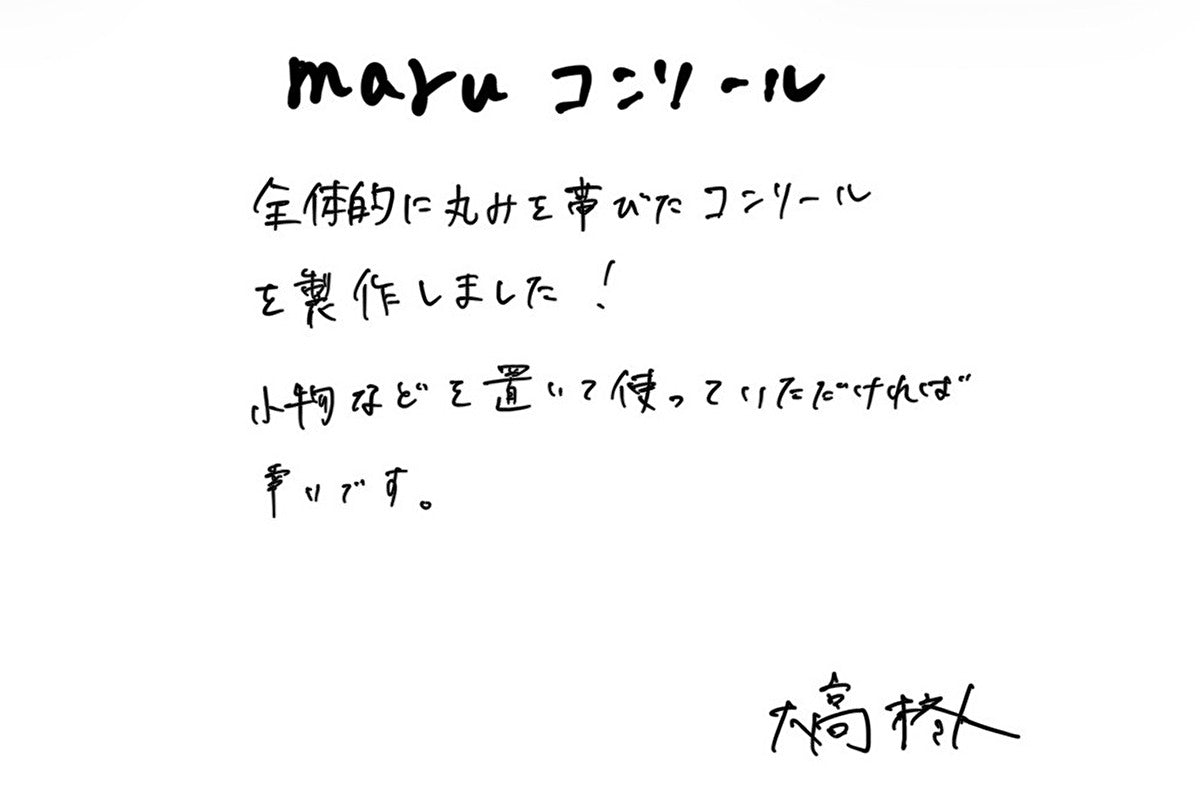 maru コンソール
全体的に丸みを帯びたコンソール
を製作しました！
小物などを置いて使っていただければ
幸いです。
大高